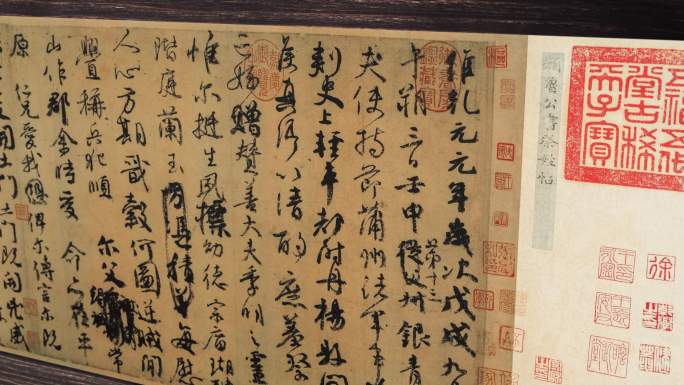 五福五代
堂古稀
天子寶
顏魯公書祭姪帖
維乾元元年歲次戊戌九
午朔三日壬申第十三從父叔銀青
夫使持節蒲州諸軍事
刺史上輕車都尉丹楊縣開
侯真卿以清酌庶羞祭
亡姪贈贊善大夫季明之靈
惟爾挺生夙標幼德宗廟瑚
階庭蘭玉方憑積善每慰
人心方期戩穀何圖逆賊間
釁稱兵犯順爾父常
山作郡余時受命亦在平
原仁兄愛我俾爾傳言爾既
開土門土門既開兇威
徐